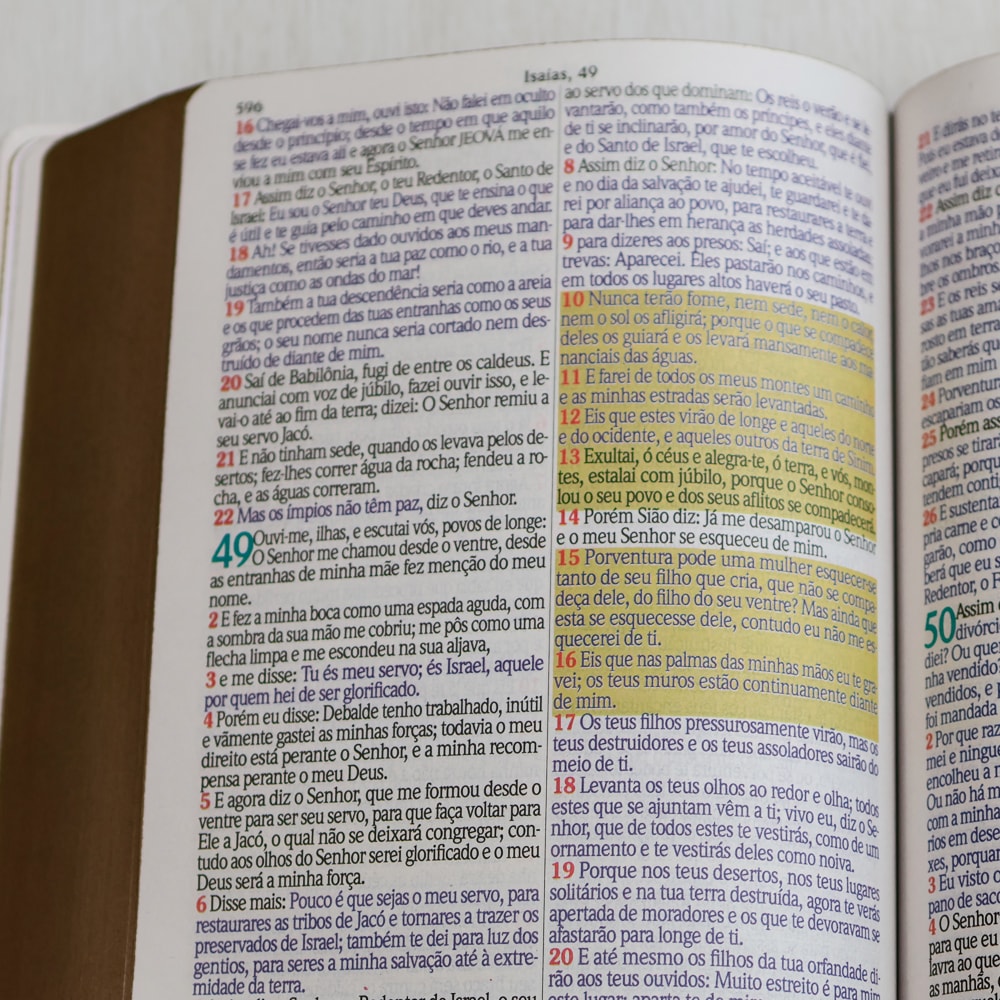 596
Isaías, 49
16 Chegai-vos a mim, ouvi isto: Não falei em oculto
desde o princípio; desde o tempo em que aquilo
se fez eu estava ali e agora o Senhor JEOVÁ me en-
viou a mim com seu Espírito.
17 Assim diz o Senhor, o teu Redentor, o Santo de
Israel: Eu sou o Senhor teu Deus, que te ensina o que
é útil e te guia pelo caminho em que deves andar.
18 Ah! Se tivesses dado ouvidos aos meus man-
damentos, então seria a tua paz como o rio, e a tua
justiça como as ondas do mar!
19 Também a tua descendência seria como a areia
e os que procedem das tuas entranhas como os seus
grãos; o seu nome nunca seria cortado nem des-
truído de diante de mim.
20 Saí de Babilônia, fugi de entre os caldeus. E
anunciai com voz de júbilo, fazei ouvir isso, e le-
vai-o até ao fim da terra; dizei: O Senhor remiu a
seu servo Jacó.
21 E não tinham sede, quando os levava pelos de-
sertos; fez-lhes correr água da rocha; fendeu a ro-
cha, e as águas correram.
22 Mas os ímpios não têm paz, diz o Senhor.
49 Ouvi-me, ilhas, e escutai vós, povos de longe:
O Senhor me chamou desde o ventre, desde
as entranhas de minha mãe fez menção do meu
nome.
2 E fez a minha boca como uma espada aguda, com
a sombra da sua mão me cobriu; me pôs como uma
flecha limpa e me escondeu na sua aljava,
3 e me disse: Tu és meu servo; és Israel, aquele
por quem hei de ser glorificado.
4 Porém eu disse: Debalde tenho trabalhado, inútil
e vãmente gastei as minhas forças; todavia o meu
direito está perante o Senhor, e a minha recom-
pensa perante o meu Deus.
5 E agora diz o Senhor, que me formou desde o
ventre para ser seu servo, para que faça voltar para
Ele a Jacó, o qual não se deixará congregar; con-
tudo aos olhos do Senhor serei glorificado e o meu
Deus será a minha força.
6 Disse mais: Pouco é que sejas o meu servo, para
restaurares as tribos de Jacó e tornares a trazer os
preservados de Israel; também te dei para luz dos
gentios, para seres a minha salvação até à extre-
midade da terra.
ao servo dos que dominam: Os reis o verão e se le-
vantarão, como também os príncipes, e eles diante
de ti se inclinarão, por amor do Senhor, que é fiel,
e do Santo de Israel, que te escolheu.
8 Assim diz o Senhor: No tempo aceitável te ouvi
e no dia da salvação te ajudei, te guardarei e te da-
rei por aliança ao povo, para restaurares a terra e
para dar-lhes em herança as herdades assoladas
9 para dizeres aos presos: Saí; e aos que estão em
trevas: Aparecei. Eles pastarão nos caminhos, e
em todos os lugares altos haverá o seu pasto.
10 Nunca terão fome, nem sede, nem o calor
nem o sol os afligirá; porque o que se compadece
deles os guiará e os levará mansamente aos ma-
nanciais das águas.
11 E farei de todos os meus montes um caminho
e as minhas estradas serão levantadas.
12 Eis que estes virão de longe e aqueles do norte
e do ocidente, e aqueles outros da terra de Sinim.
13 Exultai, ó céus e alegra-te, ó terra, e vós, mon-
tes, estalai com júbilo, porque o Senhor conso-
lou o seu povo e dos seus aflitos se compadecerá.
14 Porém Sião diz: Já me desamparou o Senhor
e o meu Senhor se esqueceu de mim.
15 Porventura pode uma mulher esquecer-se
tanto de seu filho que cria, que não se compa-
deça dele, do filho do seu ventre? Mas ainda que
esta se esquecesse dele, contudo eu não me es-
quecerei de ti.
16 Eis que nas palmas das minhas mãos eu te gra-
vei; os teus muros estão continuamente diante
de mim.
17 Os teus filhos pressurosamente virão, mas os
teus destruidores e os teus assoladores sairão do
meio de ti.
18 Levanta os teus olhos ao redor e olha; todos
estes que se ajuntam vêm a ti; vivo eu, diz o Se-
nhor, que de todos estes te vestirás, como de um
ornamento e te vestirás deles como noiva.
19 Porque nos teus desertos, nos teus lugares
solitários e na tua terra destruída, agora te verás
apertada de moradores e os que te devoravam se
afastarão para longe de ti.
20 E até mesmo os filhos da tua orfandade di-
rão aos teus ouvidos: Muito estreito é para mim
21 E dirás no
22 Assim diz o
a minha mão
lhos nos braço
bre os ombros
23 E os reis s
rosto em terra
rão saberás qu
fiam em mim
24 Porventur
escapariam os
25 Porém ass
presos se tirar
capará; porq
tendem conti
26 E sustenta
pria carne e o
garão, como
berá que eu s
Redentor, o F
50 Assim
divórci
diei? Ou que
nha vendido
vendidos, e
foi mandada
2 Por que raz
mei e ningue
encolheu a m
Ou não há m
com a minha
rios em dese
xes, porquan
3 Eu visto o
pano de saco
4 O Senhor
para que eu
lavra ao que
as manhãs,